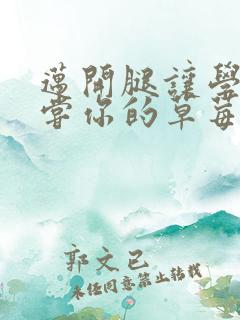 邁開腿讓學
嘗你的草莓
郭文已
未经同意禁止转载